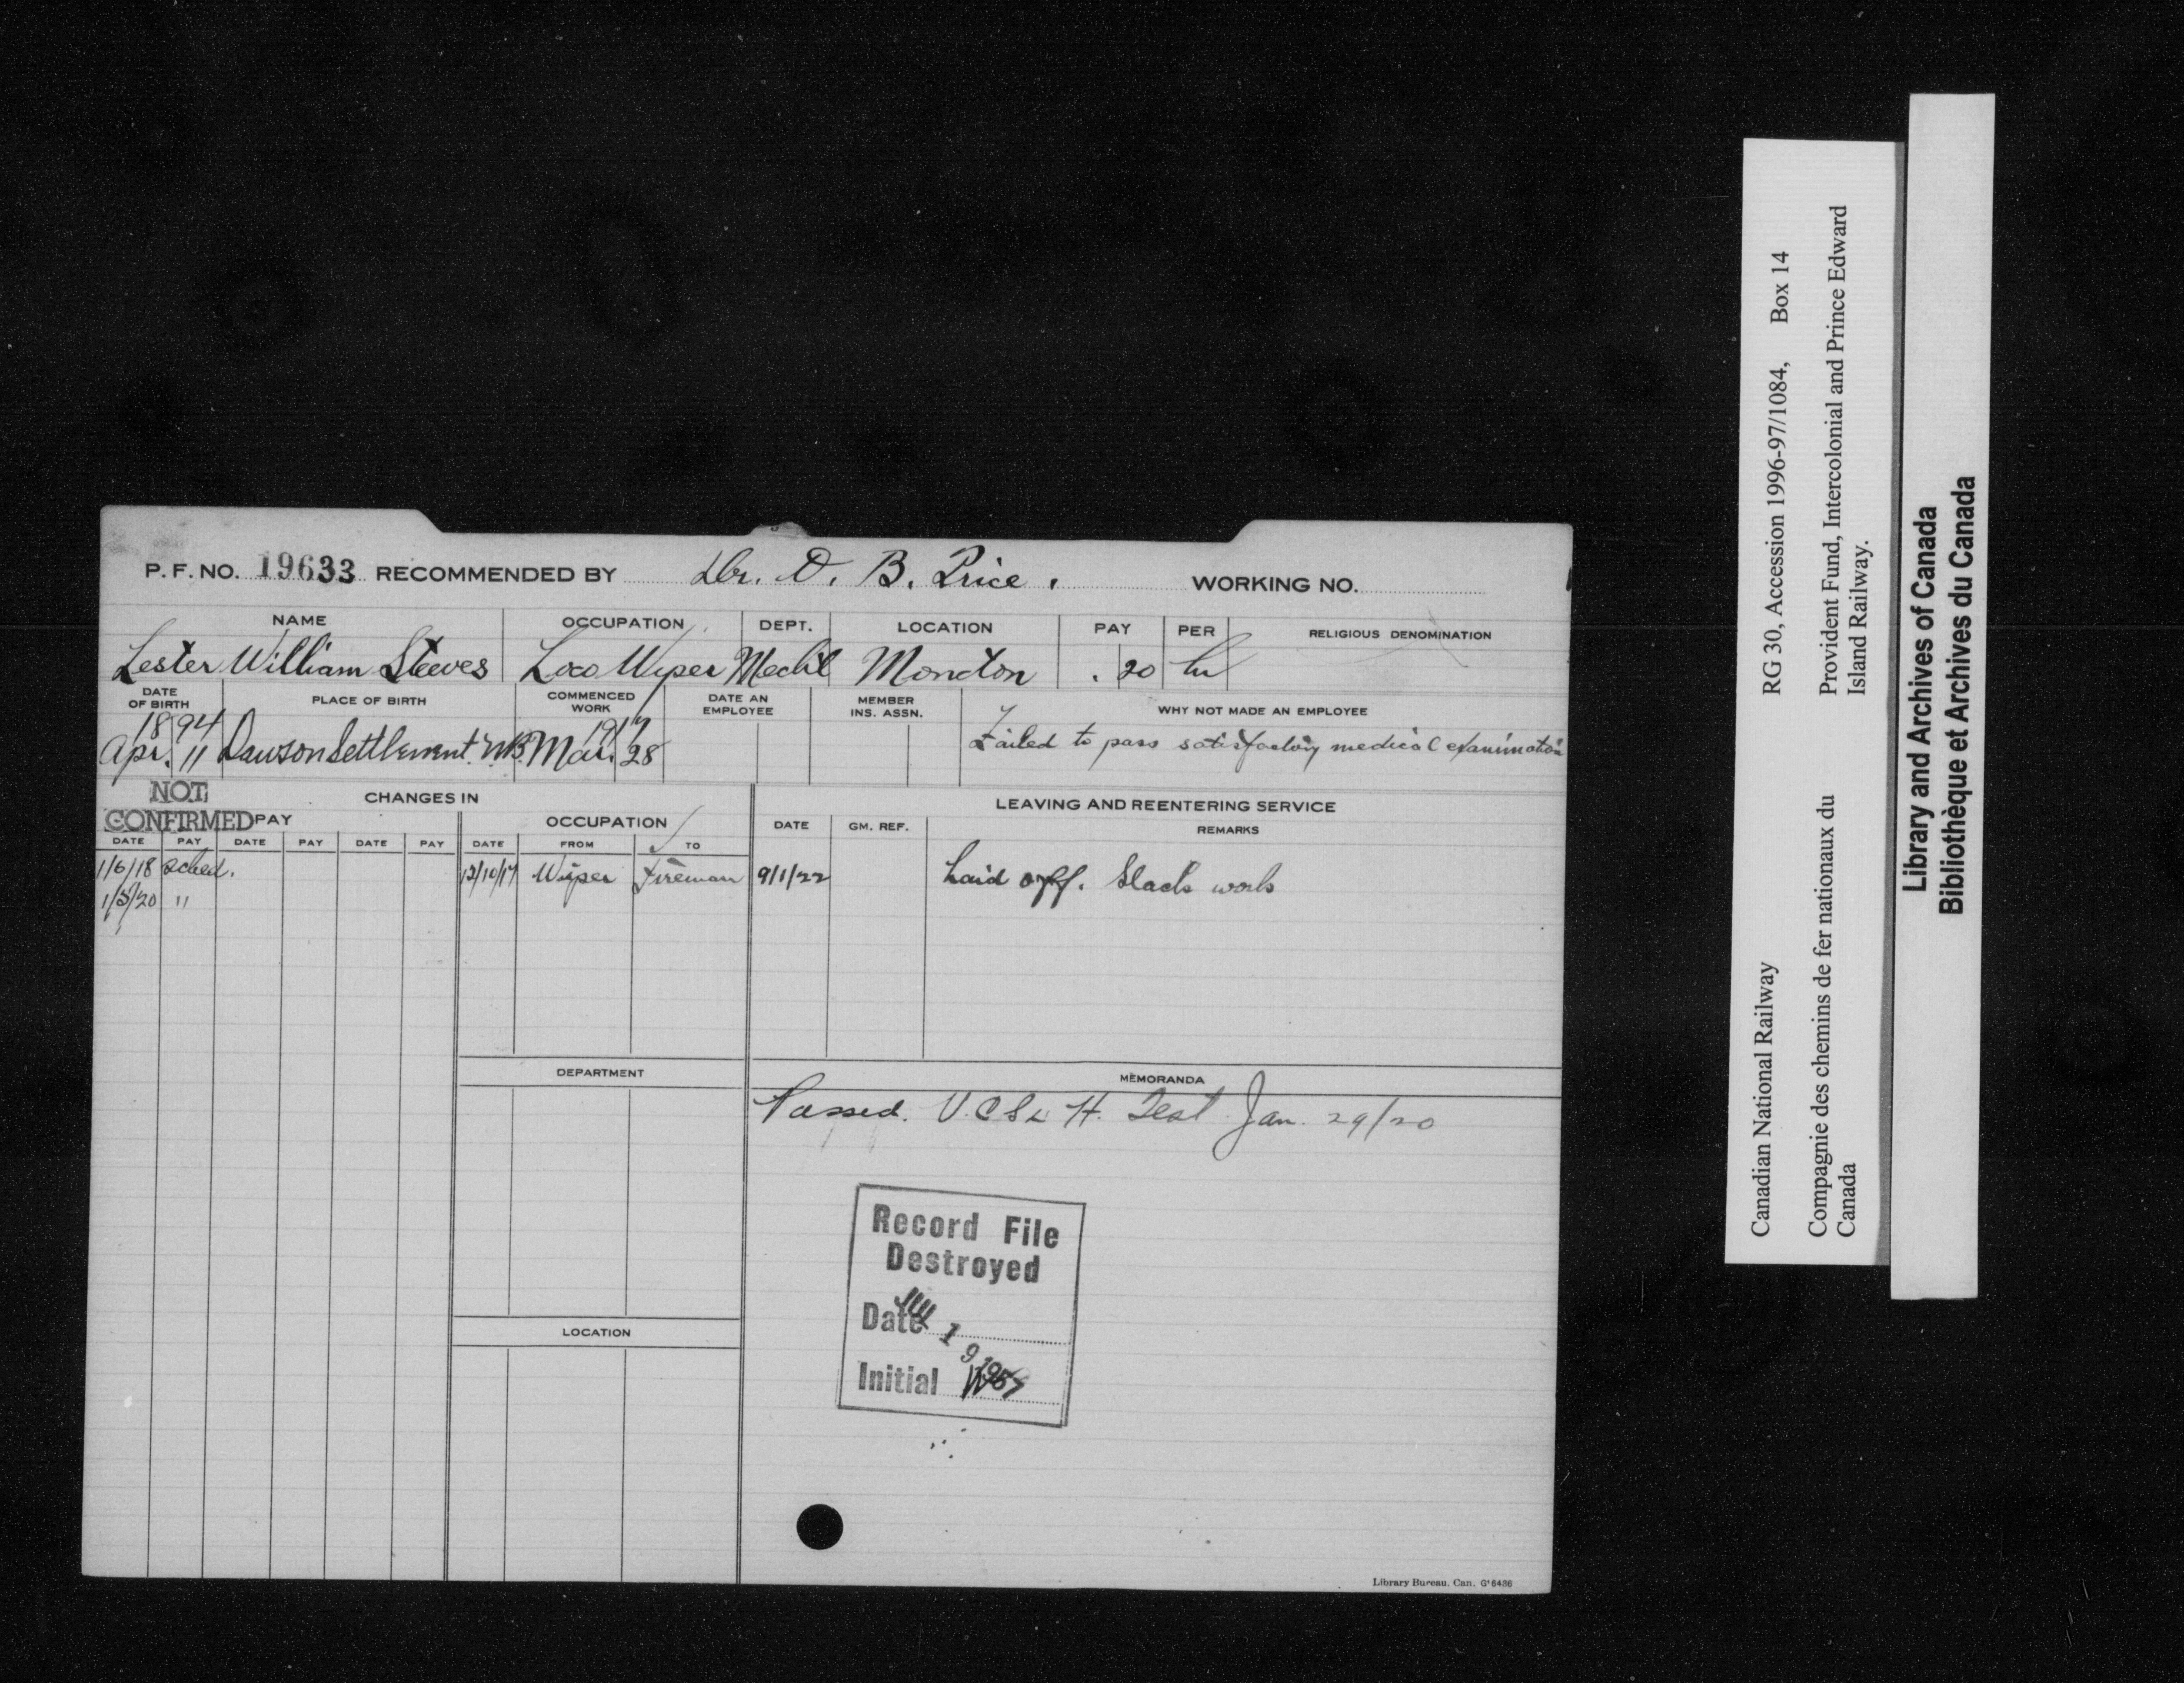 P. F. NO. 19633 RECOMMENDED BY Dr. O. B. Price. WORKING NO.
NAME OCCUPATION DEPT. LOCATION PAY PER RELIGIOUS DENOMINATION
Lester William Steeves Loco Wiper Mechl Moncton .20 hr
DATE OF BIRTH PLACE OF BIRTH COMMENCED WORK DATE AN EMPLOYEE MEMBER INS. ASSN. WHY NOT MADE AN EMPLOYEE
1894 1917
Apr. 11 Dawson Settlement. N.B. Mar. 28 Failed to pass satisfactory medical examination
NOT CONFIRMED
CHANGES IN LEAVING AND REENTERING SERVICE
PAY OCCUPATION DATE GM. REF. REMARKS
DATE PAY DATE PAY DATE PAY DATE FROM TO
1/6/18 Sched. 12/10/17 Wiper Fireman 9/1/22 Laid off. Slack work
1/5/20 "
DEPARTMENT MEMORANDA
Passed. V.C.S & H. Test Jan. 29/20
LOCATION
Record File
Destroyed
Date
Initial
Library Bureau. Can. G'6436
Canadian National Railway RG 30, Accession 1996-97/1084, Box 14
Compagnie des chemins de fer nationaux du Canada
Provident Fund, Intercolonial and Prince Edward Island Railway.
Library and Archives of Canada
Bibliothèque et Archives du Canada